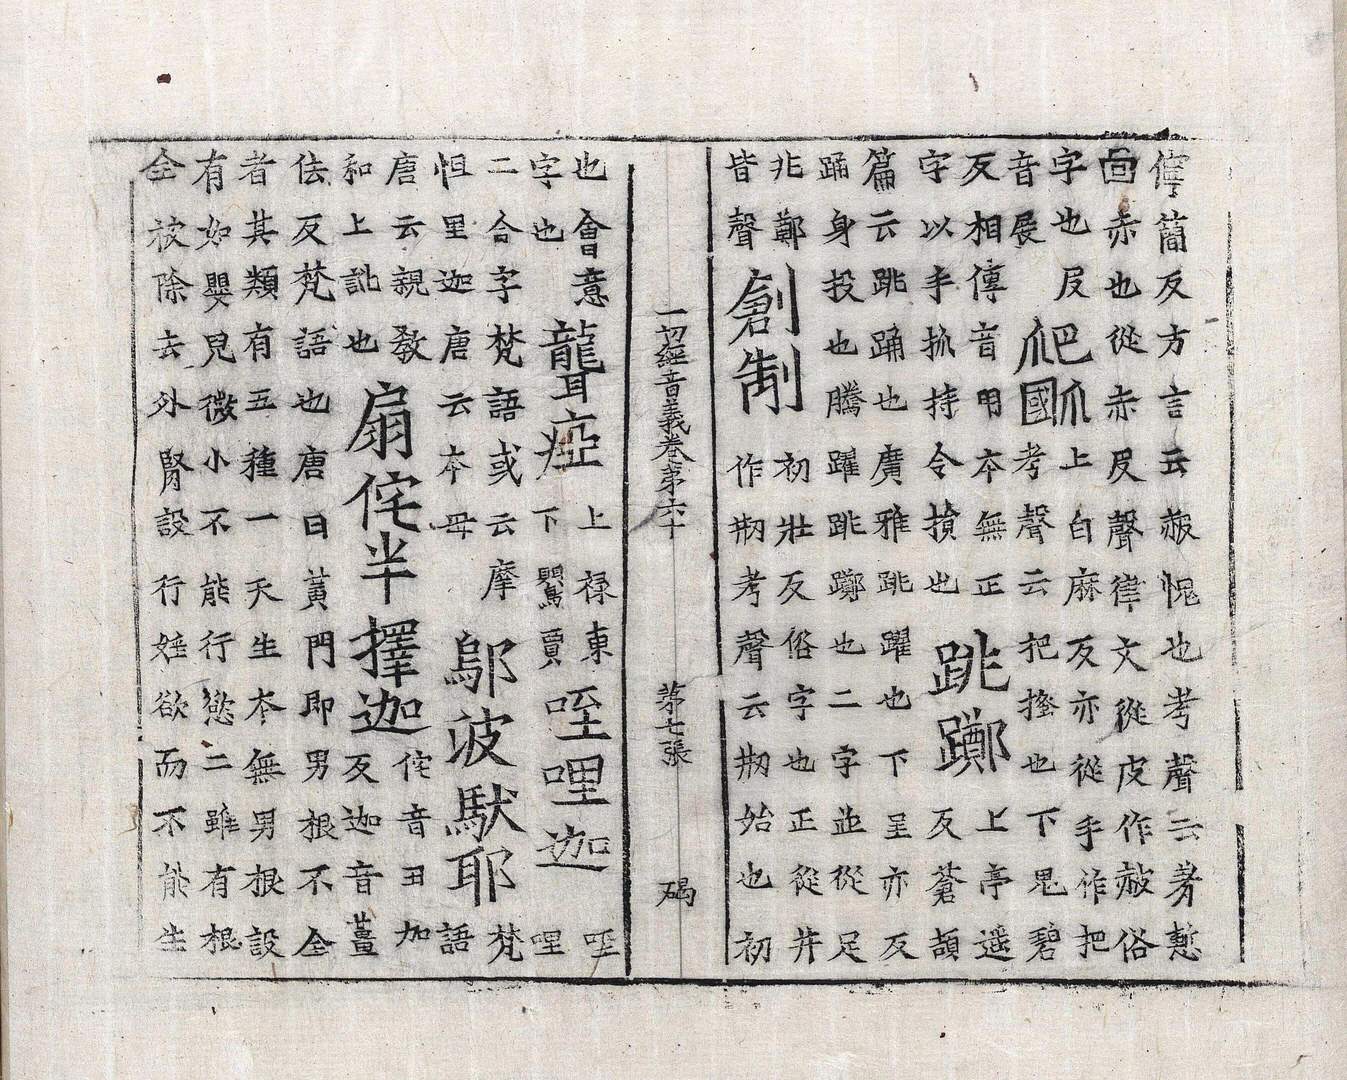 儜簡反方言云赧愧也考聲云羞慙
面赤也從赤𠬝聲律文從皮作𧹞俗
字也𠬝
音展
爬𤔩
上白麻反亦從手作把
考聲云把搔也下鬼碧
反相傳音用本無正
字以手抓持令摜也
跳躑
上亭遥
反蒼頡
篇云跳踊也廣雅跳躍也下呈亦反
踊身投也騰躍跳躑也二字並從足
兆鄭
皆聲
創制
初壯反俗字也正從井
作刱考聲云刱始也初
一切經音義卷第六十 第七張 碣
也會意
字也
聾瘂
上祿東
下鷖賈
咥哩迦
咥
哩
二合字梵語或云摩
怛里迦唐云本母
鄔波馱耶
梵
語
唐云親教
和上訛也
扇侘半擇迦
侘音丑加
反迦音薑
佉反梵語也唐曰黃門即男根不全
者其類有五種一天生本無男根設
有如嬰兒微小不能行慾二雖有根
全被除去外腎設行婬欲而不能生